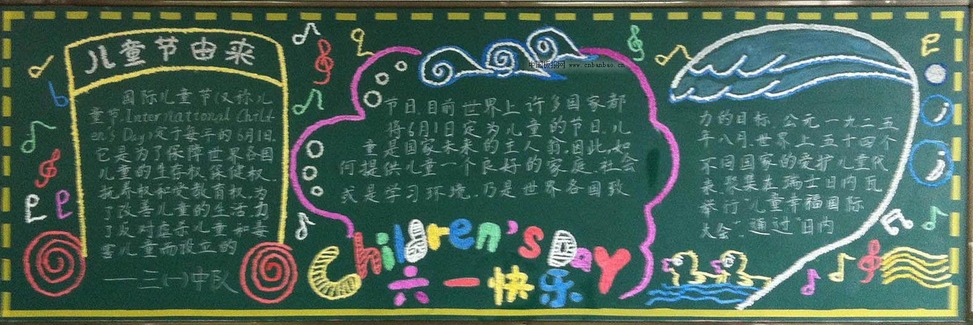 儿童节由来
国际儿童节(又称儿
童节,International Child-
en's Day)定于每年的6月1日.
它是为了保障世界各国
儿童的生存权、保健权、
抚养权和受教育权,为
了改善儿童的生活,为
了反对虐杀儿童和毒
害儿童而设立的
——三(一)中队
节日.目前世界上许多国家都
将6月1日定为儿童的节日.儿
童是国家未来的主人翁.因此,如
何提供儿童一个良好的家庭.社会
或是学习环境.乃是世界各国致
Children's Day
六一快乐
力的目标.公元一九二五
年八月.世界上五十四个
不同国家的爱护儿童代
表.聚集在瑞士日内瓦
举行"儿童幸福国际
大会".通过"日内
www.cnbanbao.cn